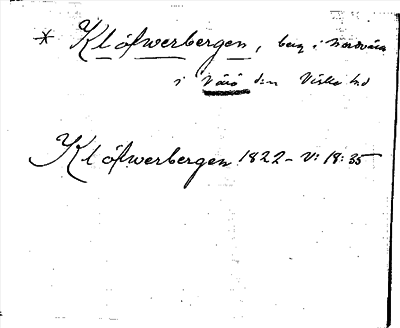 * Klöfwerbergen, berg i Nordvära
i Värö sn Viske hd
Klöfwerbergen 1822 - V: 18: 35